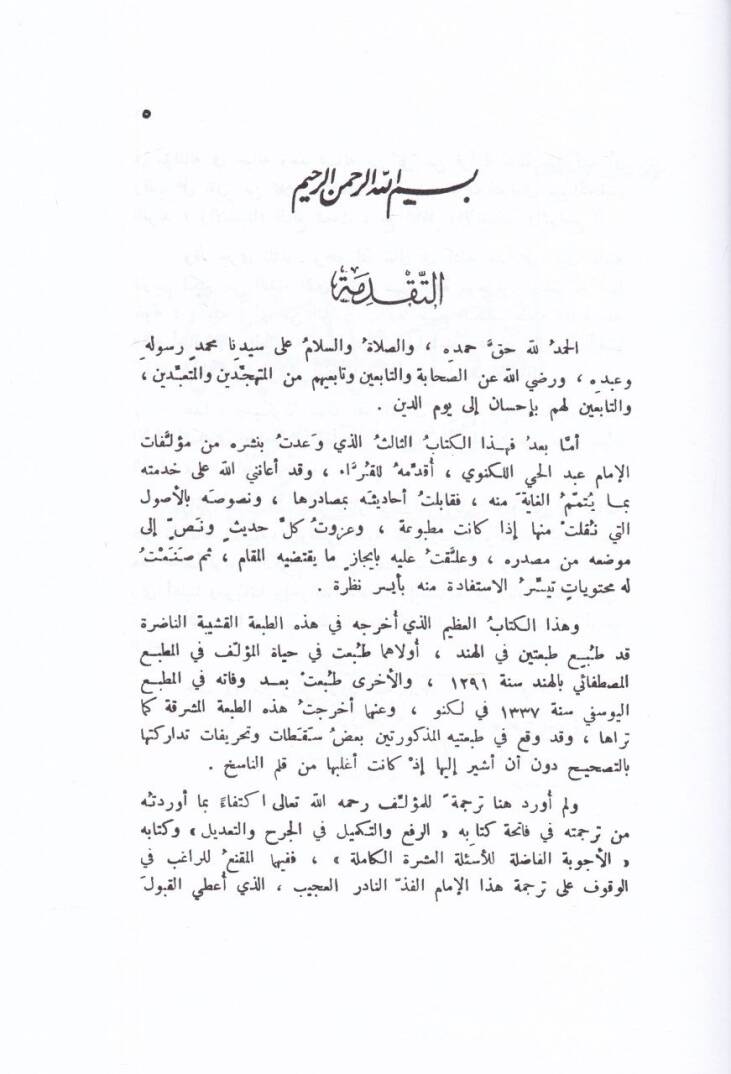 ٥
بسم الله الرحمن الرحيم
التَّقْدِمَة
الحمدُ لله حقَّ حمدِه ، والصلاةُ والسلامُ على سيدِنا محمدٍ رسولِهِ
وعبدِه ، ورضي الله عن الصحابة والتابعين وتابعيهم من المتهجِّدين والمتعبِّدين ،
والتابعين لهم بإحسان إلى يوم الدين .
أمَّا بعدُ فهذا الكتابُ الثالثُ الذي وَعدتُ بنشره من مؤلَّفات
الإمام عبد الحي اللكنوي ، أُقدِّمهُ للقُرَّاء ، وقد أعانني الله على خدمته
بما يُتمِّمُ الغايةَ منه ، فقابلتُ أحاديثَه بمصادرها ، ونصوصَه بالأصول
التي نُقلتْ منها إذا كانت مطبوعة ، وعزوتُ كلَّ حديثٍ ونَصٍّ إلى
موضعه من مصدره ، وعلَّقتُ عليه بإيجازٍ ما يقتضيه المقام ، ثم صَنَعْتُ
له محتوياتٍ تيسِّرُ الاستفادة منه بأيسر نظرة .
وهذا الكتابُ العظيم الذي أُخرجه في هذه الطبعة القشيبة الناضرة
قد طُبِع طبعتين في الهند ، أولاهما طُبعت في حياة المؤلّف في المطبع
المصطفائي بالهند سنة ١٢٩١ ، والأخرى طُبعتْ بعد وفاته في المطبع
اليوسفي سنة ١٣٣٧ في لكنو ، وعنها أخرجتُ هذه الطبعة المشرقة كما
تراها ، وقد وقع في طبعتيه المذكورتين بعضُ سَقَطات وتحريفات تداركتها
بالتصحيح دون أن أشير إليها إذْ كانت أغلبها من قلم الناسخ .
ولم أورد هنا ترجمةً للمؤلّف رحمه الله تعالى اكتفاءً بما أوردتُه
من ترجمته في فاتحة كتابِه « الرفع والتكميل في الجرح والتعديل » وكتابه
« الأجوبة الفاضلة للأسئلة العشرة الكاملة » ، ففيها المقنعُ للراغب في
الوقوف على ترجمة هذا الإمام الفذّ النادر العجيب ، الذي أُعطي القبولَ